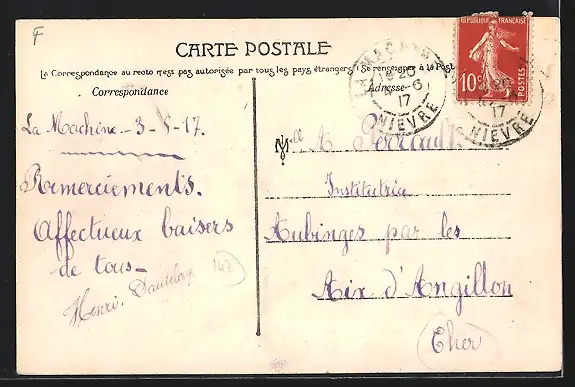 F
CARTE POSTALE
La Correspondance au recto n'est pas autorisée par tous les pays étrangers (Se renseigner à la Post
Correspondance
Adresse
RÉPUBLIQUE FRANÇAISE
10c
POSTES
LA MACHINE
20
6
17
NIEVRE
17
NIEVRE
La Machine 3-6-17.
Remerciements.
Affectueux baisers
de tous-
Henri.
142
Mell A Perrault
Institutrice
Aubinges par les
Aix d'Angillon
Cher